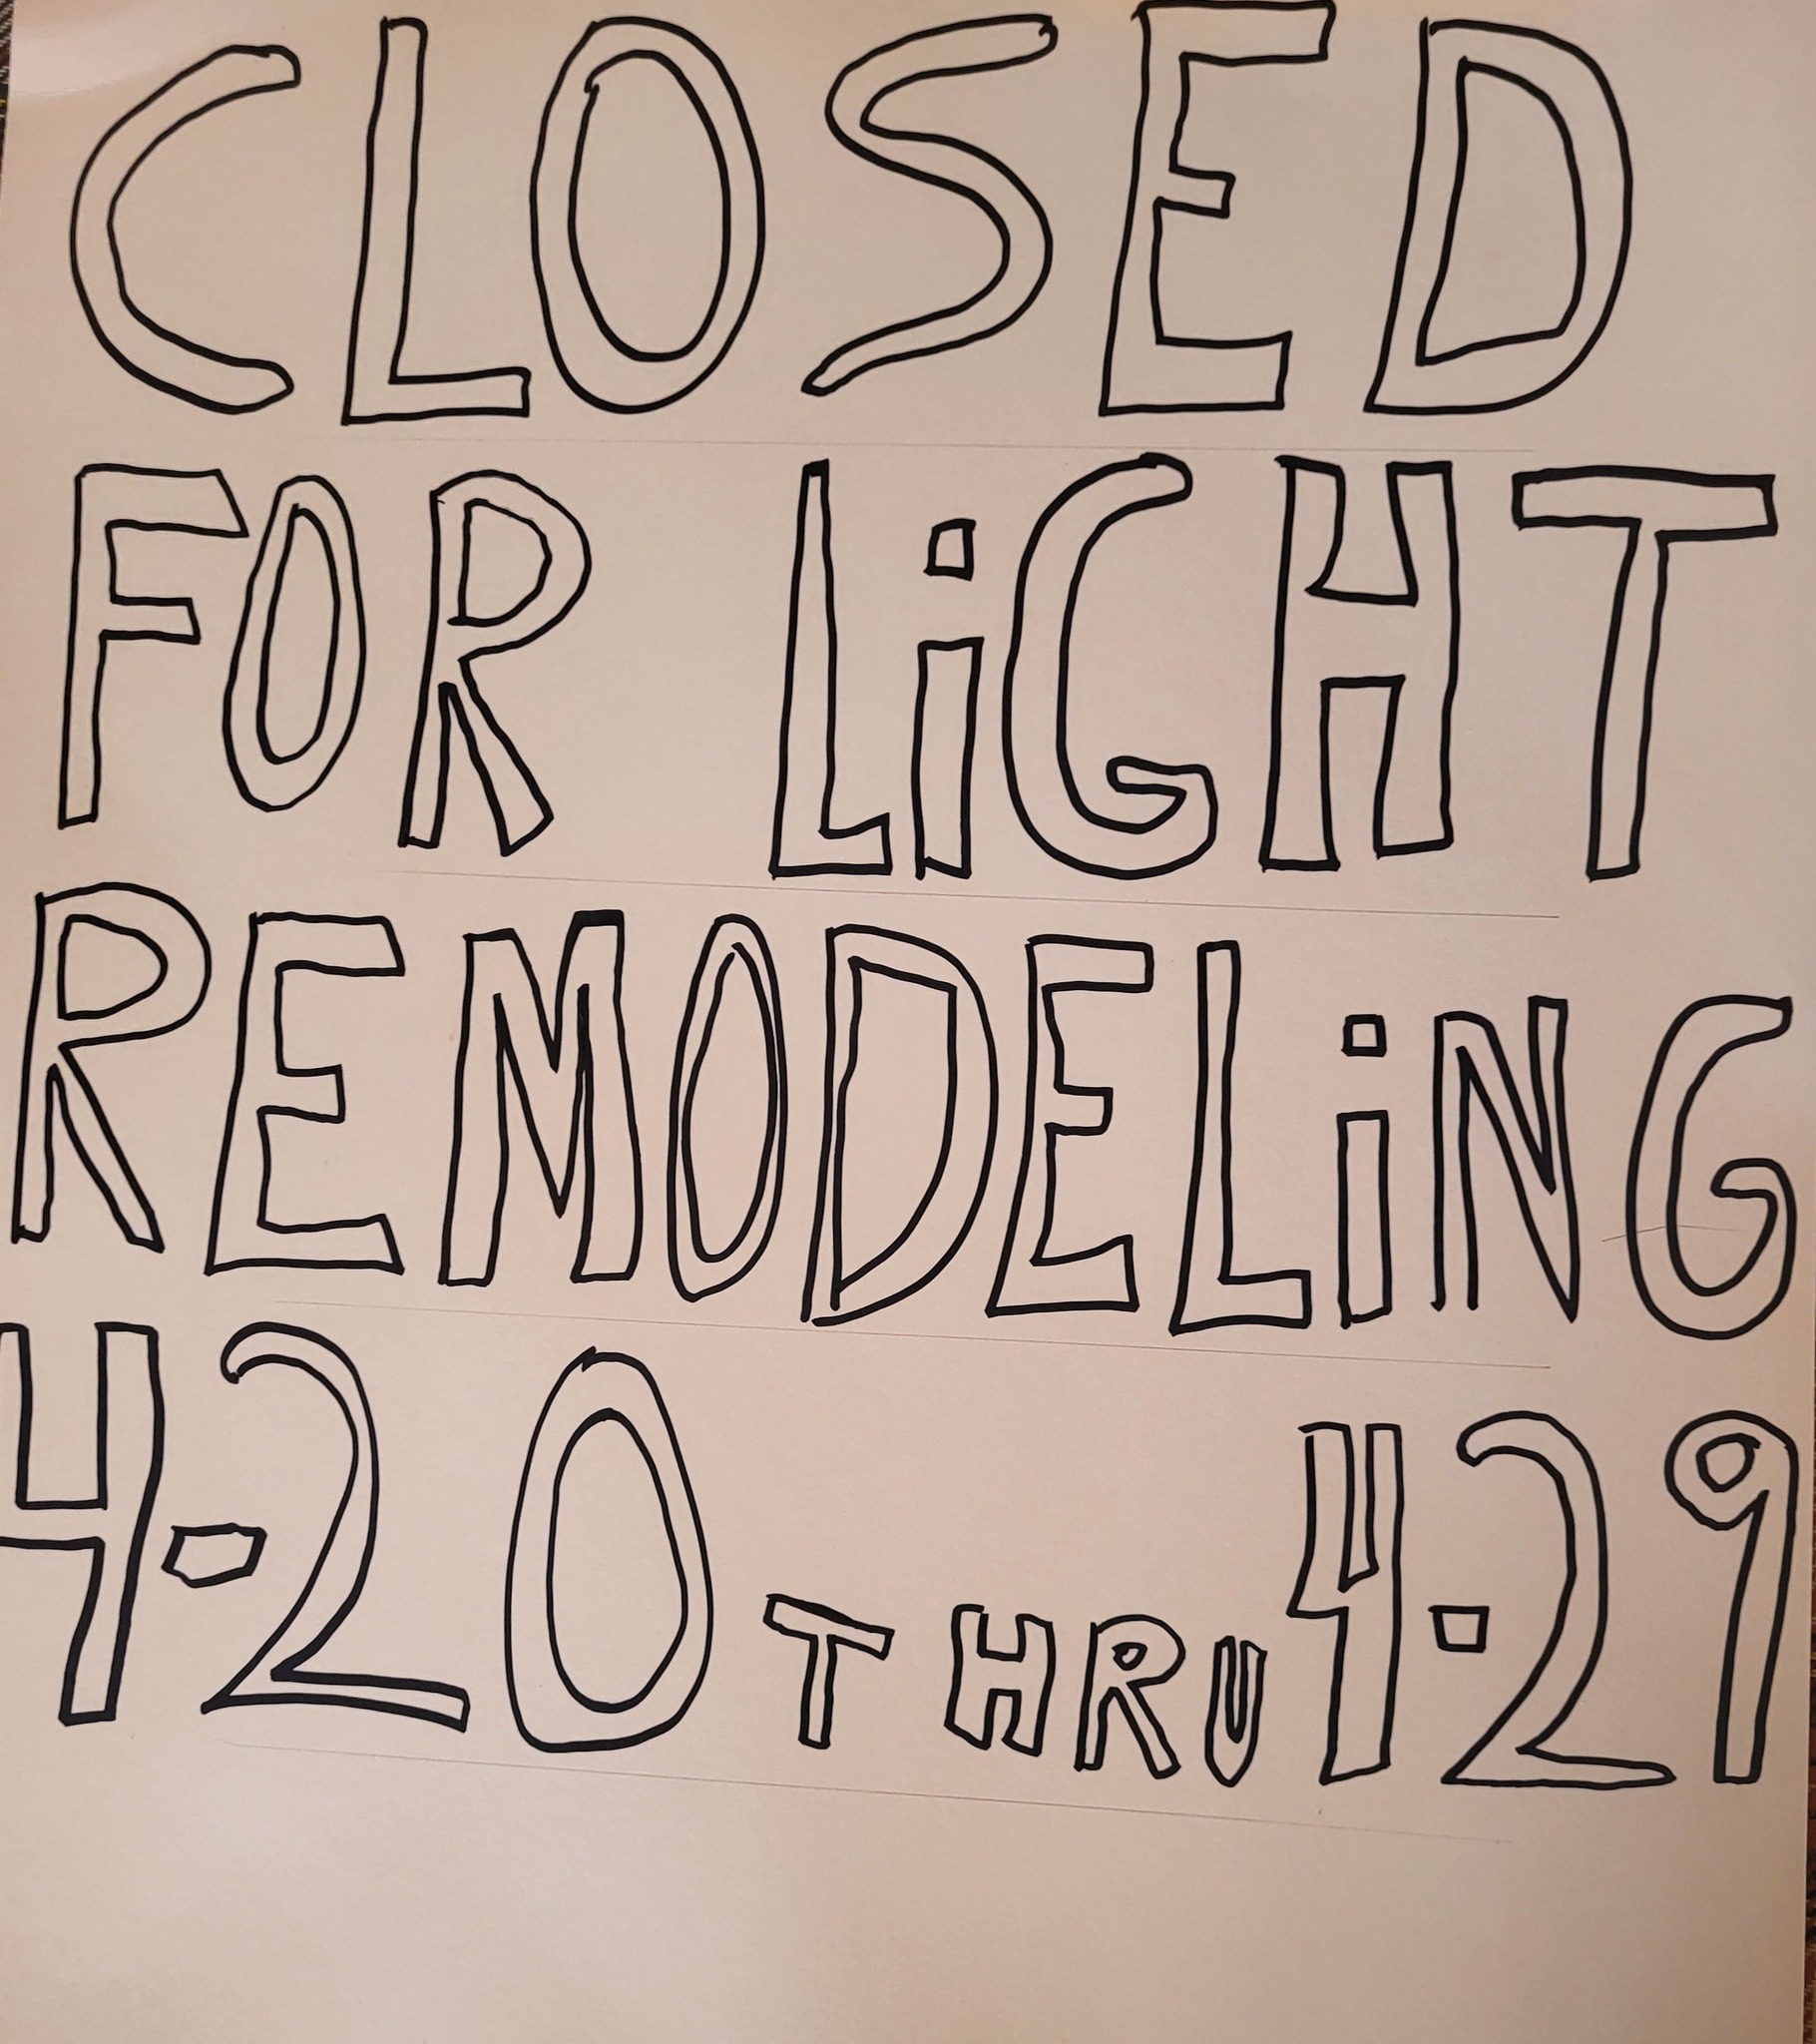 CLOSED
FOR LiGHT
REMODELiNG
4-20 THRU 4-29